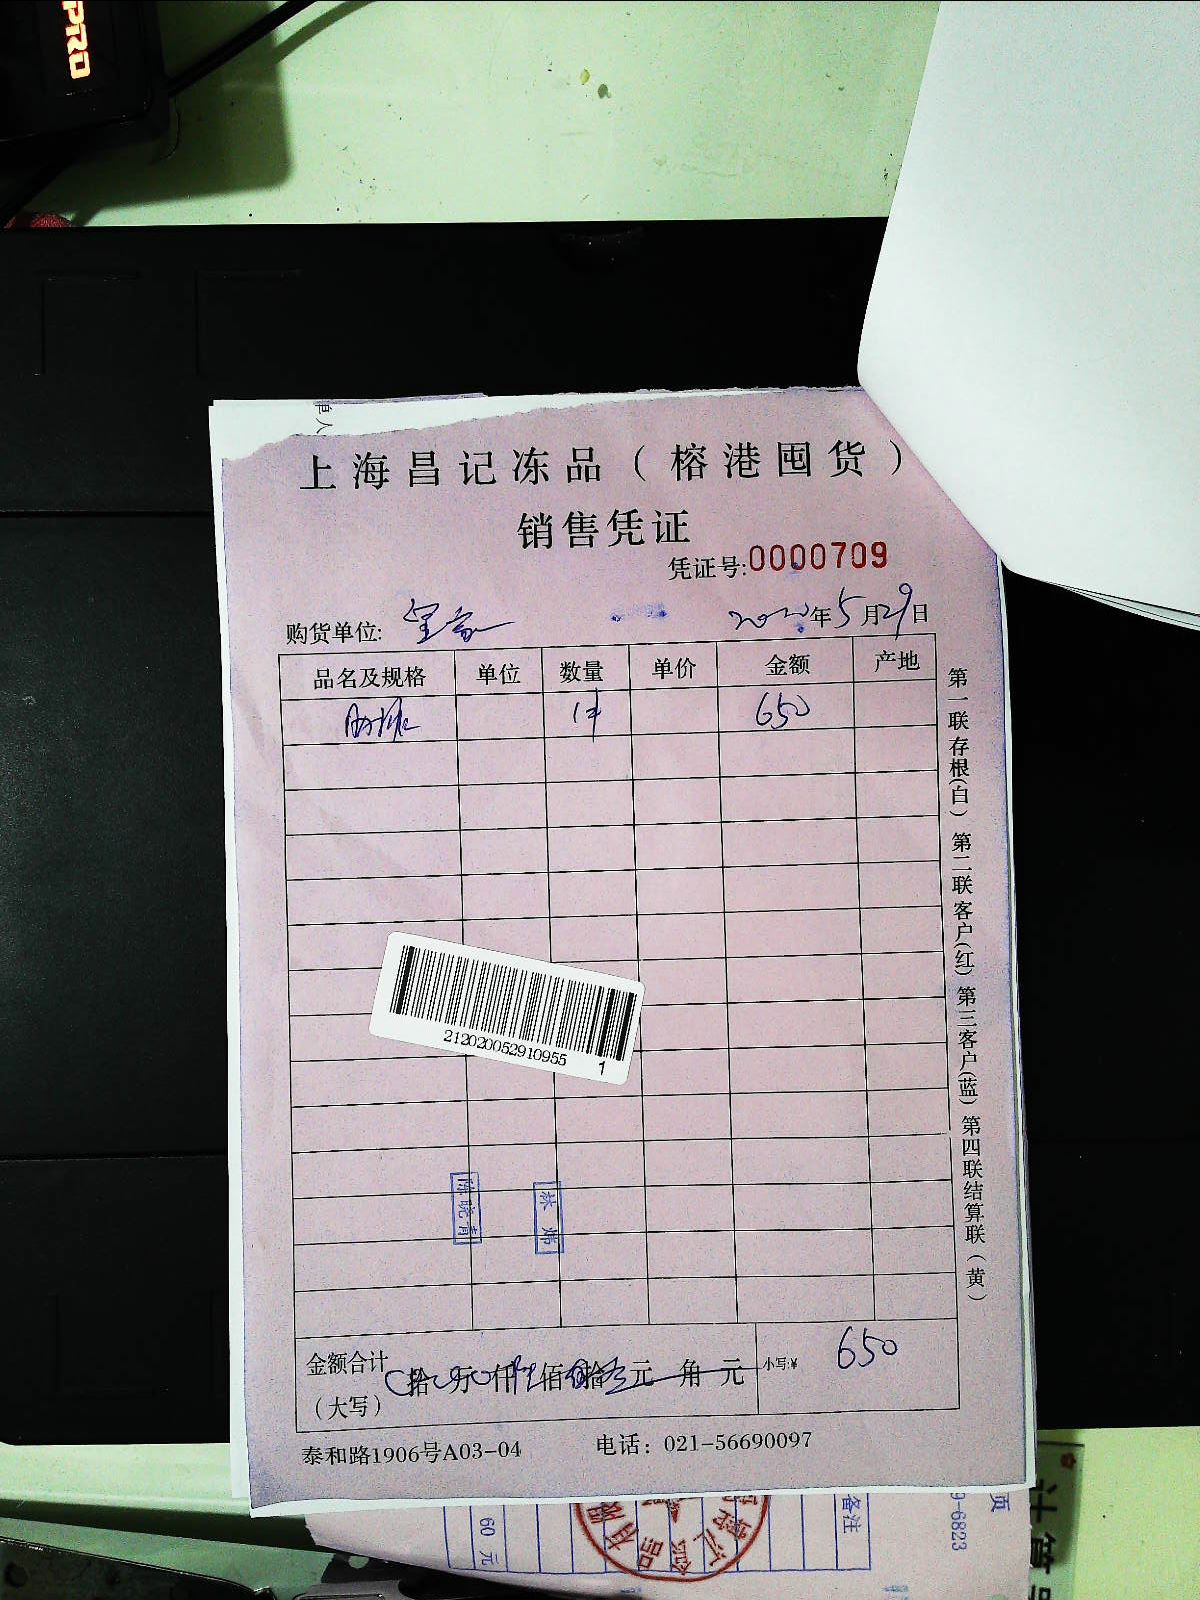 PRO
单人
上海昌记冻品（榕港囤货）
销售凭证
凭证号:0000709
购货单位: 2020年5月29日
品名及规格 单位 数量 单价 金额 产地
1件 650
第一联存根(白) 第二联客户(红) 第三客户(蓝) 第四联结算联(黄)
212020052910955 1
金额合计 拾 万 仟 佰 拾 元 角 元 小写:¥ 650
（大写）
泰和路1906号A03-04 电话：021-56690097
60 元
备注
9-6823
页